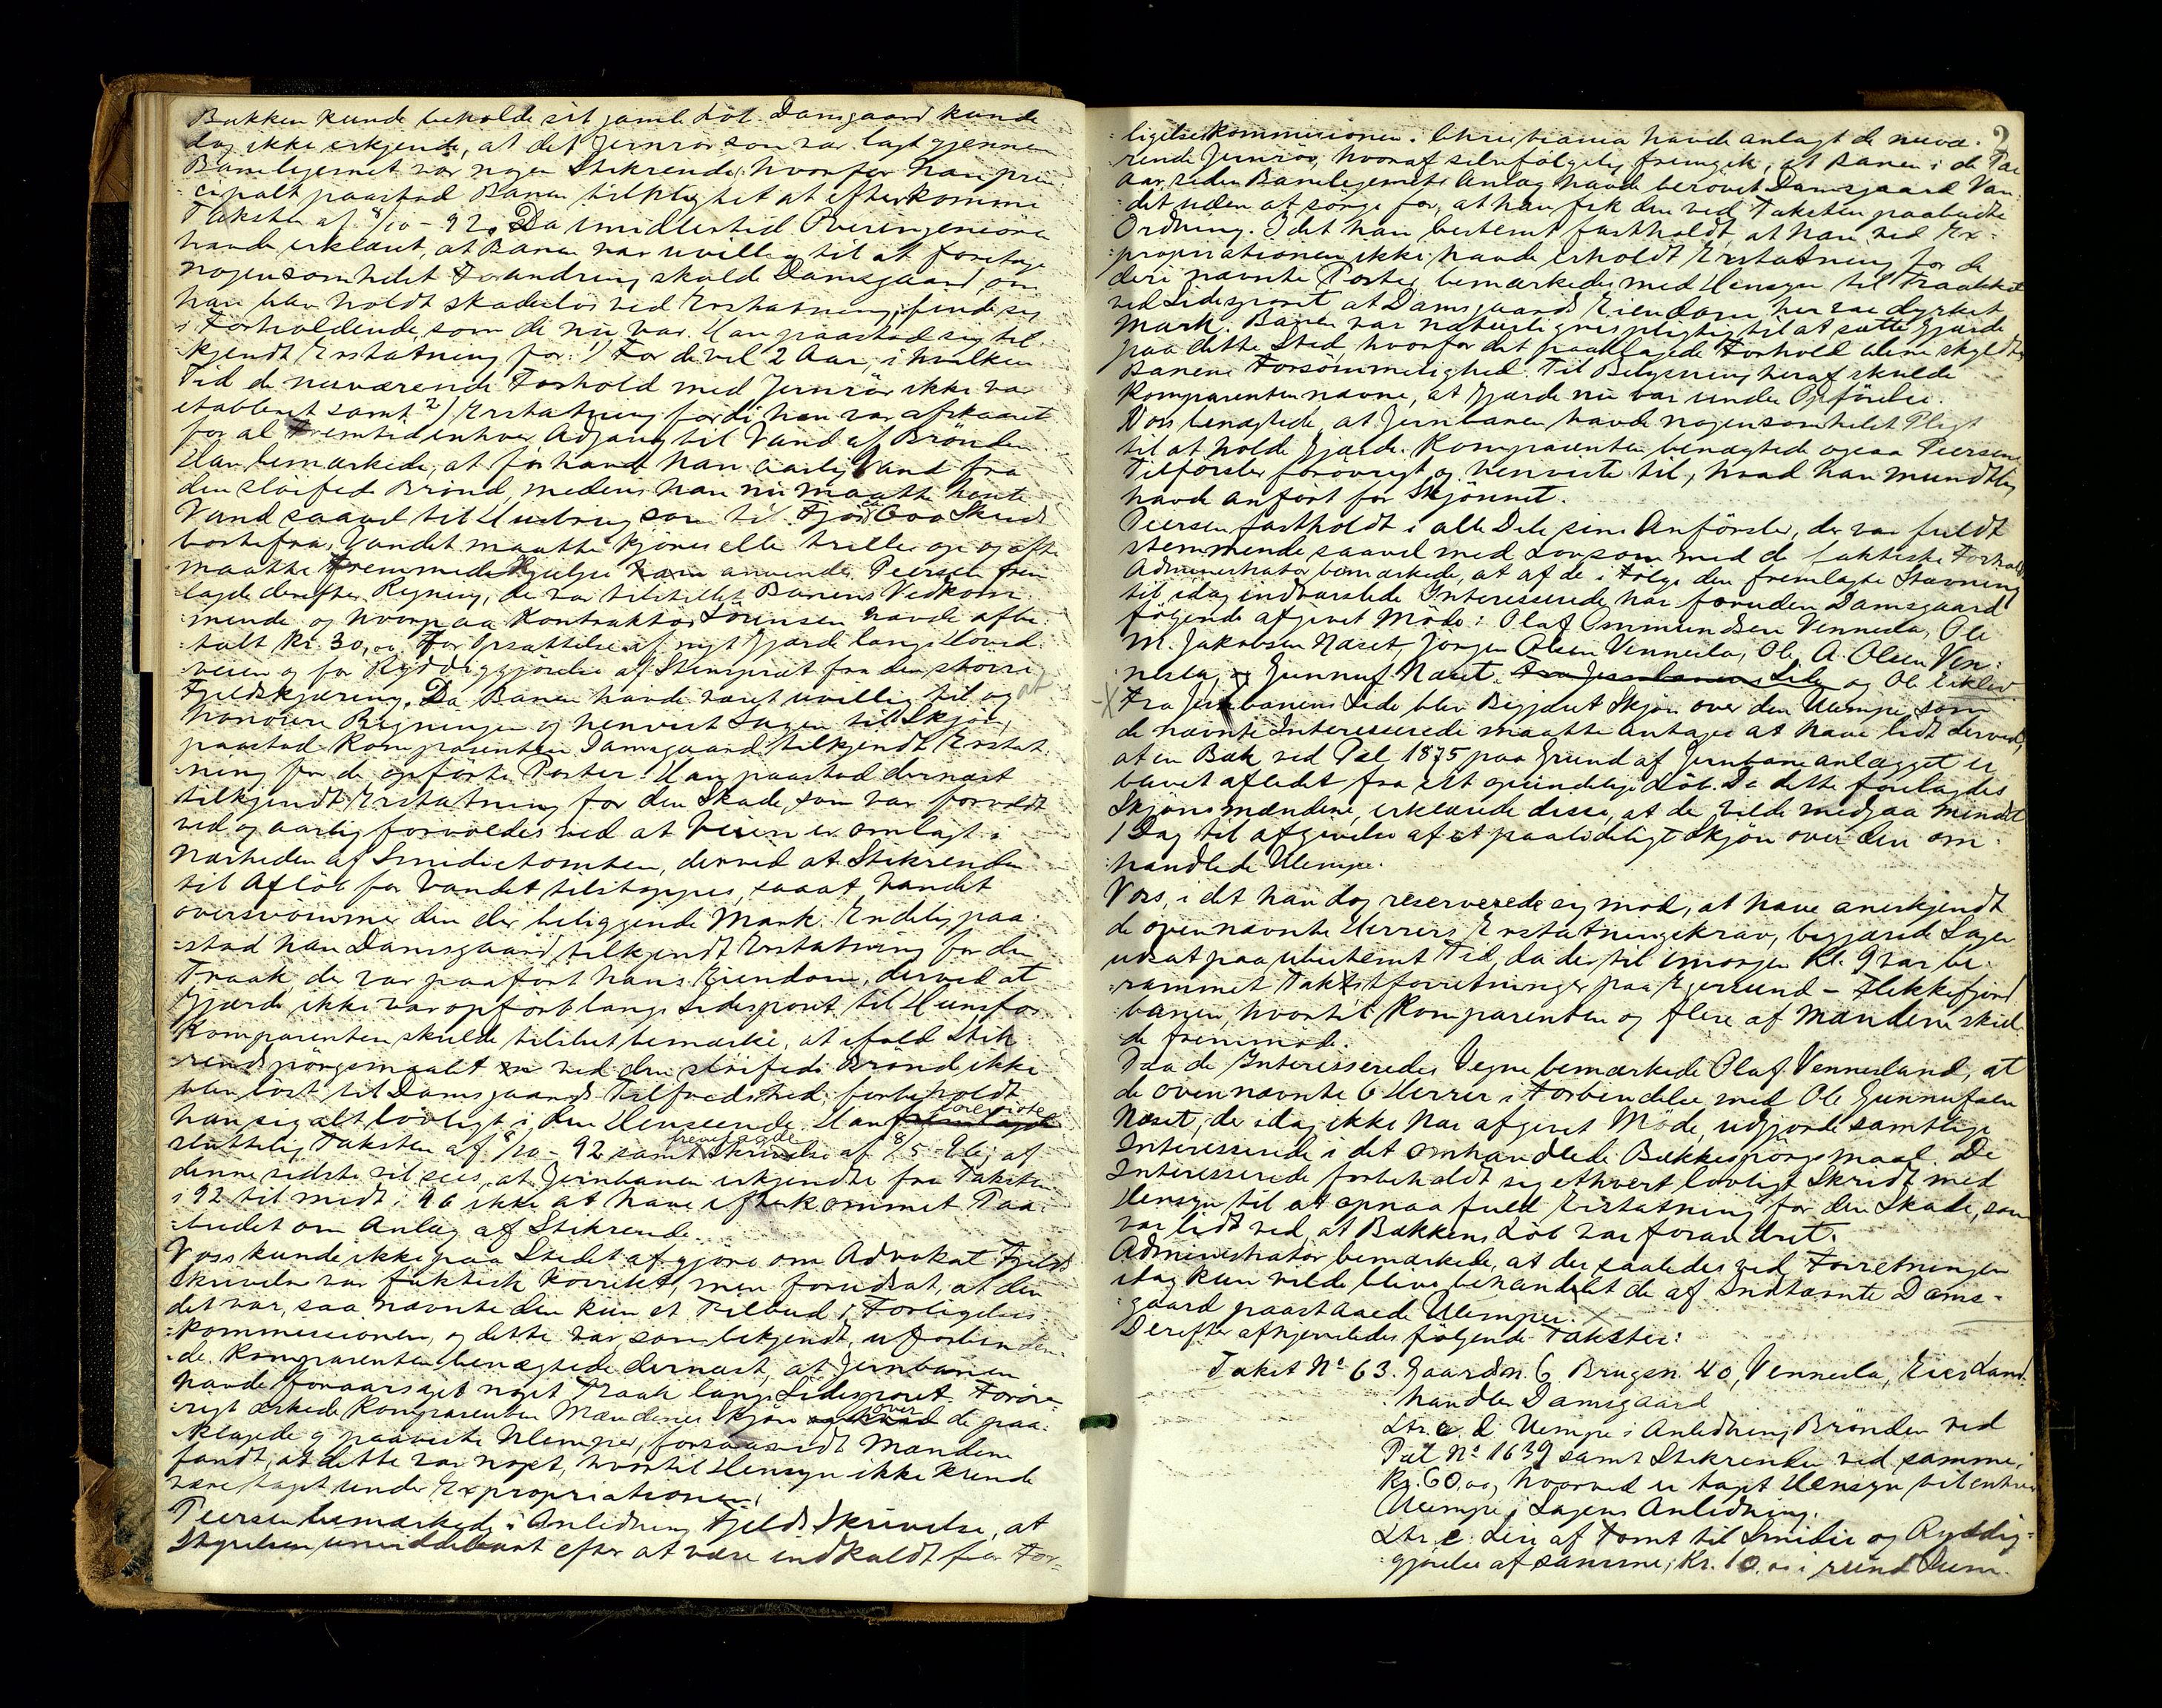 Bækken kunde beholde sit gamle Löb. Damsgaard kunde
dog ikke erkjende, at det Jernrör som var lagt gjennem
Banelegemet var nogen Stikrende, hvorfor han prin-
cipalt paastod Banen tilpligtet at efterkomme
Taksten af 8/10 - 92. Da imidlertid Overingeniören
havde erklæret, at Banen var uvillig til at foretage
nogensomhelst Forandring skulde Damsgaard, om
han blev holdt skadeslös ved Erstatning, finde sig
i Forholdende, som de nu var. Han paastod sig til-
kjendt Erstatning for: 1) For de vel 2 Aar, i hvilken
Tid de nuværende Forhold med Jernrör ikke var
etableret samt 2) Erstatning fordi han var afskaaret
for al Fremtid enhver Adgang til Vand af Brönden.
Han bemærkede, at för havde han aarlig Vand fra
den slöifede Brönd, medens han nu maatte hente
Vand saavel til Husbrug som til Fjös 600 Skridt
bortefra. Vandet maatte kjöres eller trilles og ofte
maatte fremmed Hjælp anvendes. Peersen frem-
lagde derefter Regning, der var tilstillet Banens Vedkom-
mende og hvorpaa Kontraktör Sörensen havde afbe-
talt Kr. 30,00 for Opsættelse af nyt Gjærde langs Hoved-
veien og for Ryddiggjörelse af Stensprut fra den större
Fjeldskjæring. Da Banen havde været uvillig til at
honorere Regningen og henvist Sagen til Skjön,
paastod Komparenten Damsgaard tilkjendt Erstat-
ning for de opförte Poster. Han paastod dernæst
tilkjendt Erstatning for den Skade, som var forvoldt
ved og aarlig forvoldes ved at Veien er omlagt i
Nærheden af Smidietomten, derved at Stikrenden
til Aflöb for Vandet tilstoppes, saaat Vandet
oversvömmer den der beliggende Mark. Endelig paa-
stod han Damsgaard tilkjendt Erstatning for den
Traak, der var paafört hans Eiendom, derved at
Gjærde ikke var opfört langs Sidesporet til Hunsfos.
Komparenten skulde tilslut bemærke, at ifald Stik-
rendspörgsmaalet ved den slöifede Brönd ikke
blev löst til Damsgaards Tilfredshed, forbeholdt
han sig alt lovligt i den Henseende. Han foreviste
sluttelig Taksten af 8/10 - 92 samt fremlagde Skrivelse af 8/5 - 96; af
denne sidste vil sees, at Jernbanen erkjendte fra Taksten
i 92 til midt i 96 ikke at have efterkommet Paa-
budet om Anlæg af Stikrende.
Voss kunde ikke paa Stedet afgjöre om Advokat Fjelds
Skrivelse var faktisk korrekt, men forudsat, at den
det var, saa nævnte den kun et Tilbud i Forligelses-
kommissionen, og dette var, som bekjendt, uforbinden-
de. Komparenten benægtede dernæst, at Jernbanen
havde foraarsaget noget Traak langs Sidesporet. Foröv-
rigt æskede Komparenten Mændenes Skjön over de paa-
klagede og paaviste Ulemper, forsaavidt Mændene
fandt, at dette var noget, hvortil Hensyn ikke kunde
være taget under Expropriationen.
Peersen bemærkede i Anledning Fjelds Skrivelse, at
Styrelsen umiddelbart efter at være indkaldt for For-
2
ligelseskommissionen i Christiania havde anlagt de nuvæ-
rende Jernrör, hvoraf selvfölgelig fremgik, at Banen i de Par
Aar siden Banelegemets Anlæg havde berövet Damsgaard Van-
det uden at sörge for, at han fik den ved Taksten paabudte
Ordning. Idet han bestemt fastholdt, at han ved Ex-
propriationen ikke havde erholdt Erstatning for de
deri nævnte Poster, bemærkedes med Hensyn til Traakket
ved Sidesporet at Damsgaards Eiendom her var dyrket
Mark. Banen var naturligvis pligtig til at sætte Gjærde
paa dette Sted, hvorfor det paaklagede Forhold alene skyldtes
Banens Forsömmelighed. Til Belysning heraf skulde
Komparenten nævne, at Gjærde nu var under Opförelse.
Voss benægtede, at Jernbanen havde nogensomhelst Pligt
til at holde Gjærde. Komparenten benægtede ogsaa Peersens
Tilförsler forövrigt og henviste til, hvad han mundtlig
havde anfört for Skjönnet.
Peersen fastholdt i alle Dele sine Anförsler, der var fuldt
stemmende saavel med Lov som med de faktiske Forhold.
Administrator bemærkede, at af de i Fölge den fremlagte Stævning
til idag indvarslede Interesserede har foruden Damsgaard
fölgende afgivet Möde: Olaf Ommundsen Vennesla, Ole
M. Jakobsen Næset, Jörgen Olsen Vennesla, Ole A. Olsen Ven-
nesla, Gunnuf Næset og Ole Eiklid.
Fra Jernbanens Side blev Begjæret Skjön over den Ulempe, som
de nævnte Interesserede maatte antages at have lidt derved,
at en Bæk ved Pæl 1875 paa Grund af Jernbaneanlægget er
blevet afledet fra sit oprindelige Löb. Da dette forelagdes
Skjönsmændene, erklærede disse, at der vilde medgaa mindst
1 Dag til afgivelse af et paalideligt Skjön over den om-
handlede Ulempe.
Voss, i det han dog reserverede sig mod, at have anerkjendt
de ovennævnte Herrers Erstatningskrav, begjærede Sagen
udsat paa ubestemt Tid, da der til imorgen Kl. 9 var be-
rammet Takstforretninger paa Egersund - Flekkefjord
banen, hvortil Komparenten og flere af Mændene skul-
de fremmöde.
Paa de Interesseredes Vegne bemærkede Olaf Vennesland, at
de ovennævnte 6 Herrer i Forbindelse med Ole Gunnufsen
Næset, der idag ikke har afgivet Möde, udgjorde samtlige
Interesserede i det omhandlede Bækkespörgsmaal. De
Interesserede forbeholdt sig ethvert lovligt Skridt med
Hensyn til at opnaa fuld Erstatning for den Skade, som
var lidt ved, at Bækkens Löb var forandret.
Administrator bemærkede, at der saaledes ved Forretningen
idag kun vilde blive behandlet de af Indtævnte Dams-
gaard paastaaede Ulemper.
Derefter afhjemledes fölgende Takster:
Takst No 63. Gaardsn. 6 Brugsn. 40, Vennesla, Eier Land-
handler Damsgaard
Ltr. d. Ulempe i Anledning Brönden ved
Pæl No 1639 samt Stikrenden ved samme,
Kr. 60,00, hvorved er taget Hensyn til enhver
Ulempe i Sagens Anledning.
Ltr. e. Leie af Tomt til Smidie og Ryddig-
gjörelse af samme, Kr. 10,00 i rund Sum.